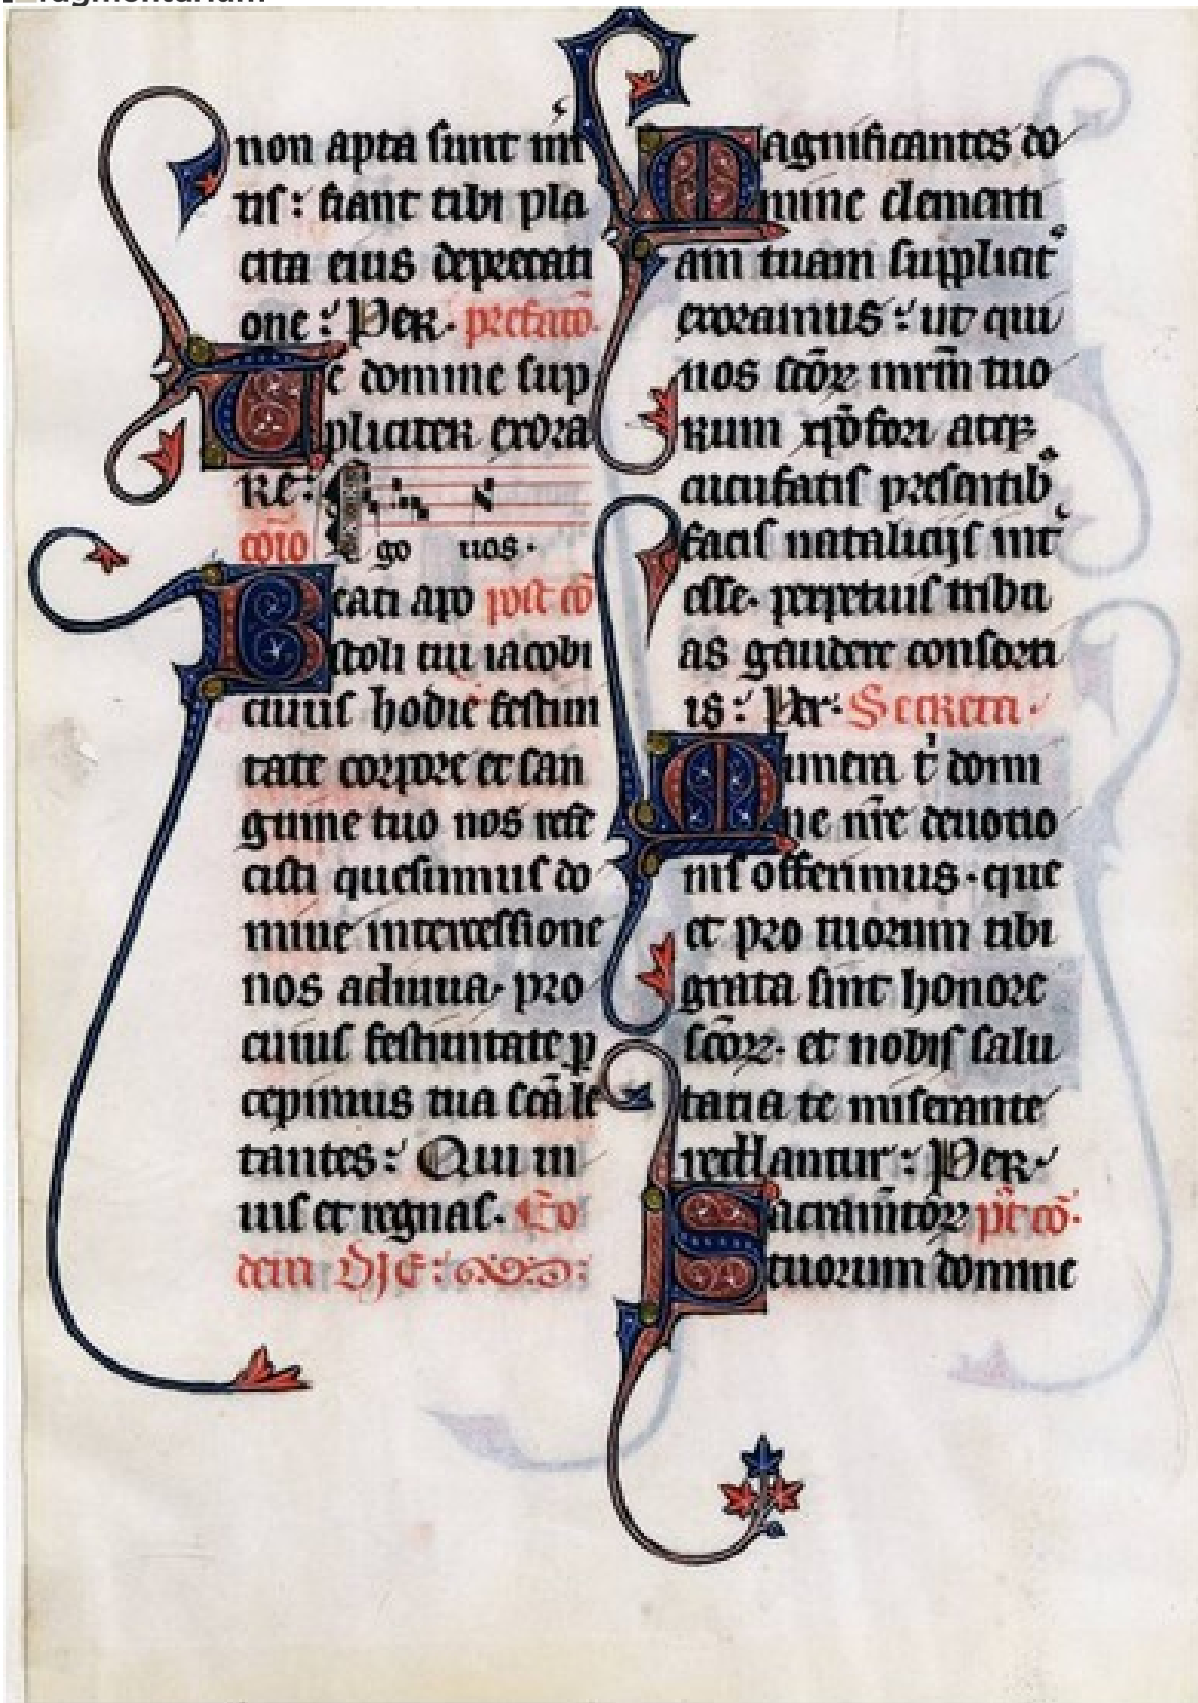 non apta sunt mri
tis: fiant tibi pla
cita eius deprecati
one: Per. prefatō.
Te domine sup
pliciter exora
re: Ego uos.
cōio
Beati apo post cō
stoli tui iacobi
cuius hodie festiui
tate corpore et san
guine tuo nos refe
cisti quesumus do
mine intercessione
nos adiuua. pro
cuius festiuitate ꝑ
cepimus tua scā le
tantes: Qui ui
uis et regnas. Eo
dem DIE:
Magnificantes do
mine clementi
am tuam suppliciť
exoramus: ut qui
nos scōꝝ mrm̄ tuo
rum xp̄ofori atqꝫ
cucufatis presentibꝰ
facis natalicijs inť
esse. perpetuis tribu
as gaudere consorti
is: Per. Secreta.
Munera ť domi
ne nr̄e deuotio
nis offerimus. que
et pro tuorum tibi
grata sint honore
scōꝝ. et nobis salu
taria te miserante
reddantur: Per.
Sacramn̄toꝝ pť cō.
tuorum domine